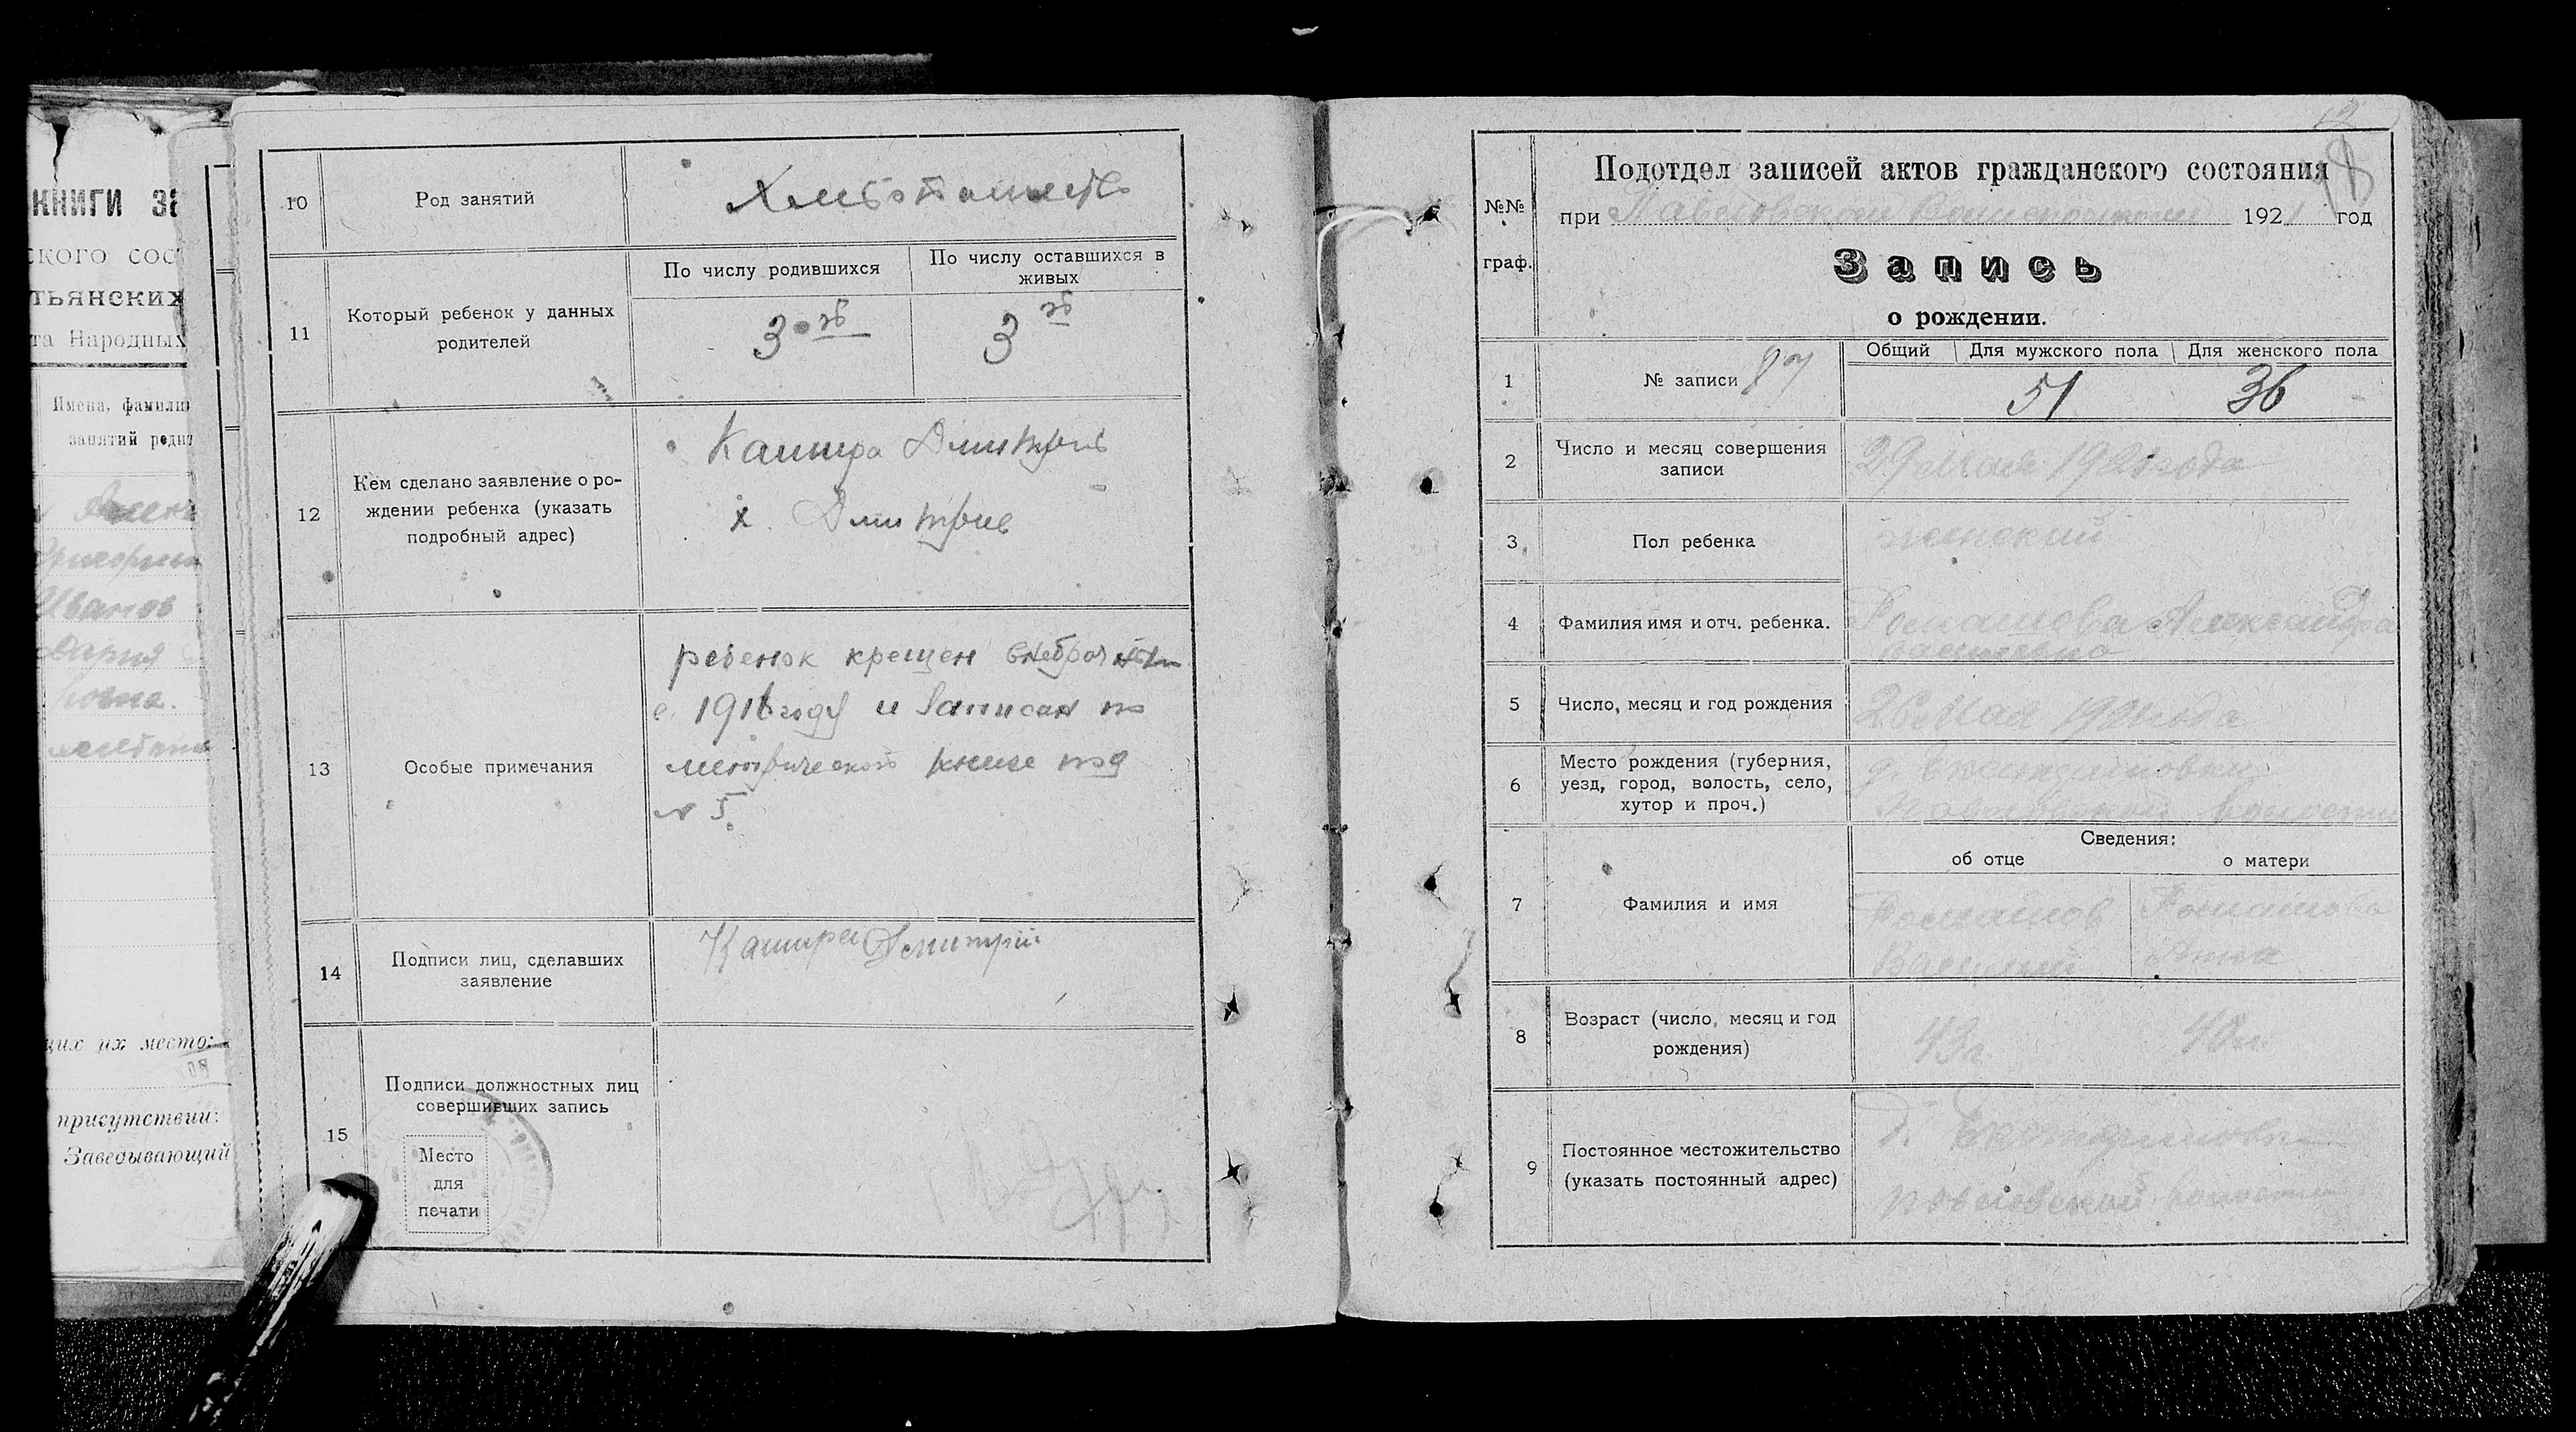 КНИГИ ЗА
ского сос
тьянских
та Народных
Имена, фамили
занятий роди
Иванов
Дария
щих их место:
присутствии:
Заведывающий
10
Род занятий
11
Который ребенок у данных
родителей
По числу родившихся
По числу оставшихся в
живых
3
3
12
Кем сделано заявление о ро-
ждении ребенка (указать
подробный адрес)
Кашира Дмитрий
х. Дмитрие
13
Особые примечания
ребенок крещен
в 1916 году и записан по
метрической книге под
№ 5.
14
Подписи лиц, сделавших
заявление
Кашира Дмитрий
15
Подписи должностных лиц
совершивших запись
Место
для
печати
18
№№
граф.
Подотдел записей актов гражданского состояния
при Павловском Волисполкоме 1921 год
Запись
о рождении.
1
№ записи 87
Общий
Для мужского пола
Для женского пола
51
36
2
Число и месяц совершения
записи
29 Мая 1921 года
3
Пол ребенка
женский
4
Фамилия имя и отч. ребенка.
Романова Александра
Васильевна
5
Число, месяц и год рождения
26 Мая 1921 года
6
Место рождения (губерния,
уезд, город, волость, село,
хутор и проч.)
д. Екатериновки
Павловской волости
Сведения:
об отце
о матери
7
Фамилия и имя
Романов
Василий
Романова
Анна
8
Возраст (число, месяц и год
рождения)
43 г.
9
Постоянное местожительство
(указать постоянный адрес)
д. Екатериновки
Павловской волости